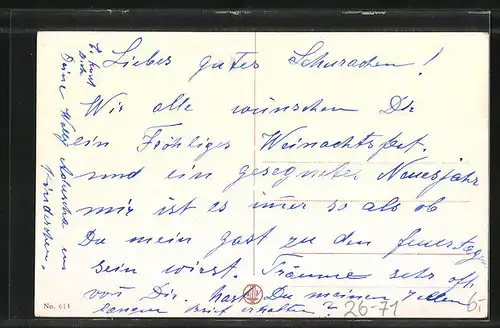 Liebes gutes Schurachen!
Wir alle wünschen Dir
ein Fröhliges Weinachtsfest.
und ein gesegnetes Neuesjahr
mir ist es imer so als ob
Du mein gast zu den feuertage
sein wirst. Träume sehr oft
von Dir. hast Du meinen
langen Brief erhalten?
Es küsst
Dich
Deine Welly
No. 614
26-71
6.-